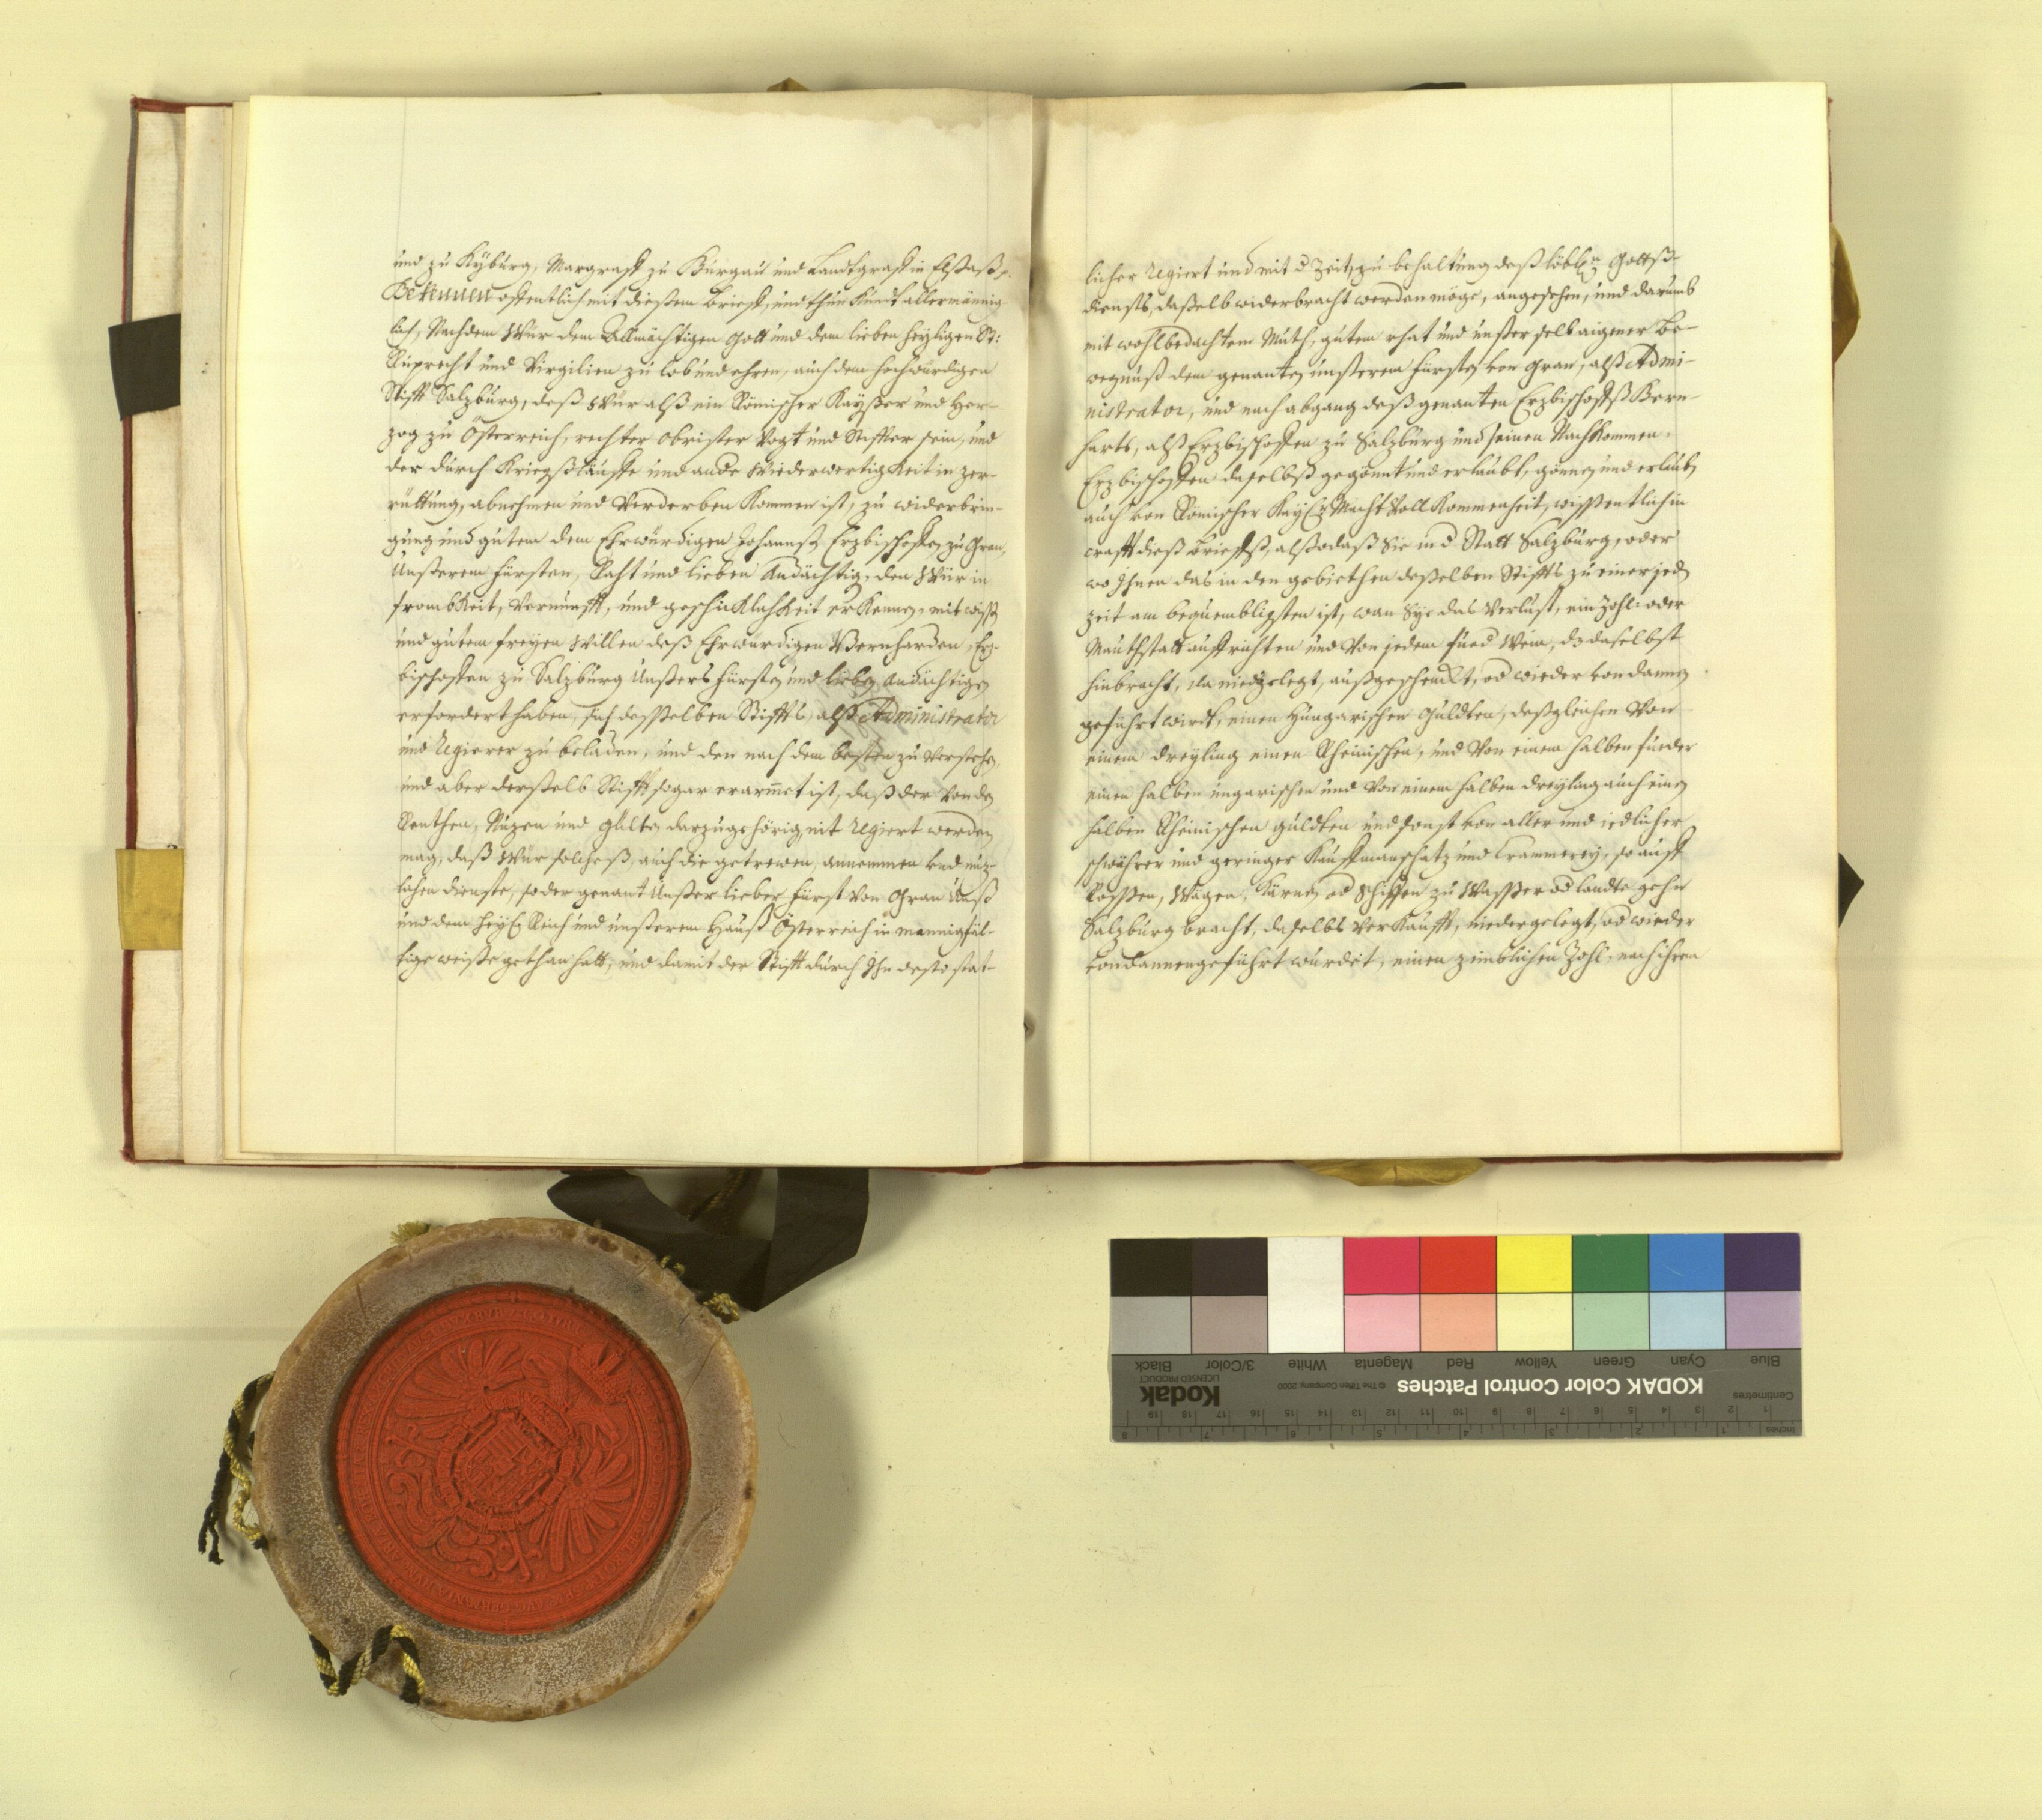 und zu Kyburg, Margraff zu Burgau und Landtgraff in Elsaß p.
Bekennen offentlich mit dießem brieff, und thun kundt allermännig-
lich, Nachdem Wür dem Allmächtigen Gott und dem lieben heyligen St:
Ruprecht und Virgilien zu lob und ehren, auch dem hochwürdigen
Stifft Salzburg, deß Wür alß ein Römischer Kayßer und Her-
zog zu Österreich, rechter obrister Vogt und Stiffter sein, und
der durch Kriegßläuffe und ande Wiederwertigkeit in zer-
rüttung, abnehmen und Verderben kommen ist, zu widerbrin-
gung und gutem dem Ehrwürdigen Johannß Erzbischoffen zu Gran,
Unßerem fürsten, Raht und lieben Andächtig, den Wür in
frombkeit, Vernunfft, und geschicklichkeit erkennen, mit wiß
und gutem freyen Willen deß Ehrwürdigen Bernharden Erz-
bischoffen zu Salzburg Unßers fürsten und lieben Andächtigen
erfordert haben, sich desselben Stiffts, alß Administrator
und Regierer zu beladen, und den nach dem besten zu Versehen
und aber derßelb Stifft sogar erarmet ist, daß der von den
Renthen, Nuzen und gülten darzugehörig nit Regiert werden
mag, daß Wür solcheß, auch die getrewen, annemmen und nuz-
lichen dienste, so der genant Unßer lieber fürst von Gran Unß
und dem heyl Reich und unßerem Hauß Österreich in mannigfäl-
tige weiße gethan hatt, und damit der Stifft durch Ihn desto stat-
licher Regiert und mit d Zeit, zu behaltung deß löbln Gottß-
diensts, daßelb widerbracht werden möge, angesehen, und darumb
mit wohlbedachtem Muth, gutem rhat und unßer selb aigener be-
wegnuß dem genanten unßerem fürsten von Gran, alß Admi-
nistrator, und nach abgang deß genanten Erzbischoffß Bern-
harts, alß Erzbischoffen zu Salzburg und seinen Nachkommen
Erzbischoffen daselbst gegönnt und erlaubt, gönnen und erlauben
auch von Römischer Kayl Macht Vollkommenheit, wissentlich in
crafft dieß brieffß, alßo daß Sie in d Statt Salzburg, oder
wo Ihnen das in den gebiethen deßelben Stiffts zu einer jedn
zeit am bequemblichsten ist, wan Sye das Verlust, ein Zohl- oder
Mauthstatt auffrichten und Von jedem fued Wein, dz daselbst
hinbracht, da niedgelegt, außgeschenckt, od wieder von dannen
geführt wirdt, einen Hungarischen Guldten, deßgleichen Von
einem dreyling einen Rheinischen, und Von einem halben fueder
einen halben ungarischen und Von einem halben dreyling auch einen
halben Rheinischen gulden und sonst von aller und iedlicher
schwährer und geringer Kauffmanschatz und Crammerey, so auff
Rossen, Wägen, Kärnen od Schiffen zu Wasser od landte gehn
Salzburg bracht, daselbs Verkaufft, niedergelegt, od wieder
von dannen geführt würdet, einen zimblichen Zohl, nach ihren
KODAK Color Control Patches
© The Tiffen Company, 2000
Kodak
LICENSED PRODUCT
Blue Cyan Green Yellow Red Magenta White 3/Color Black
Centimetres
1 2 3 4 5 6 7 8 9 10 11 12 13 14 15 16 17 18 19
Inches
1 2 3 4 5 6 7 8